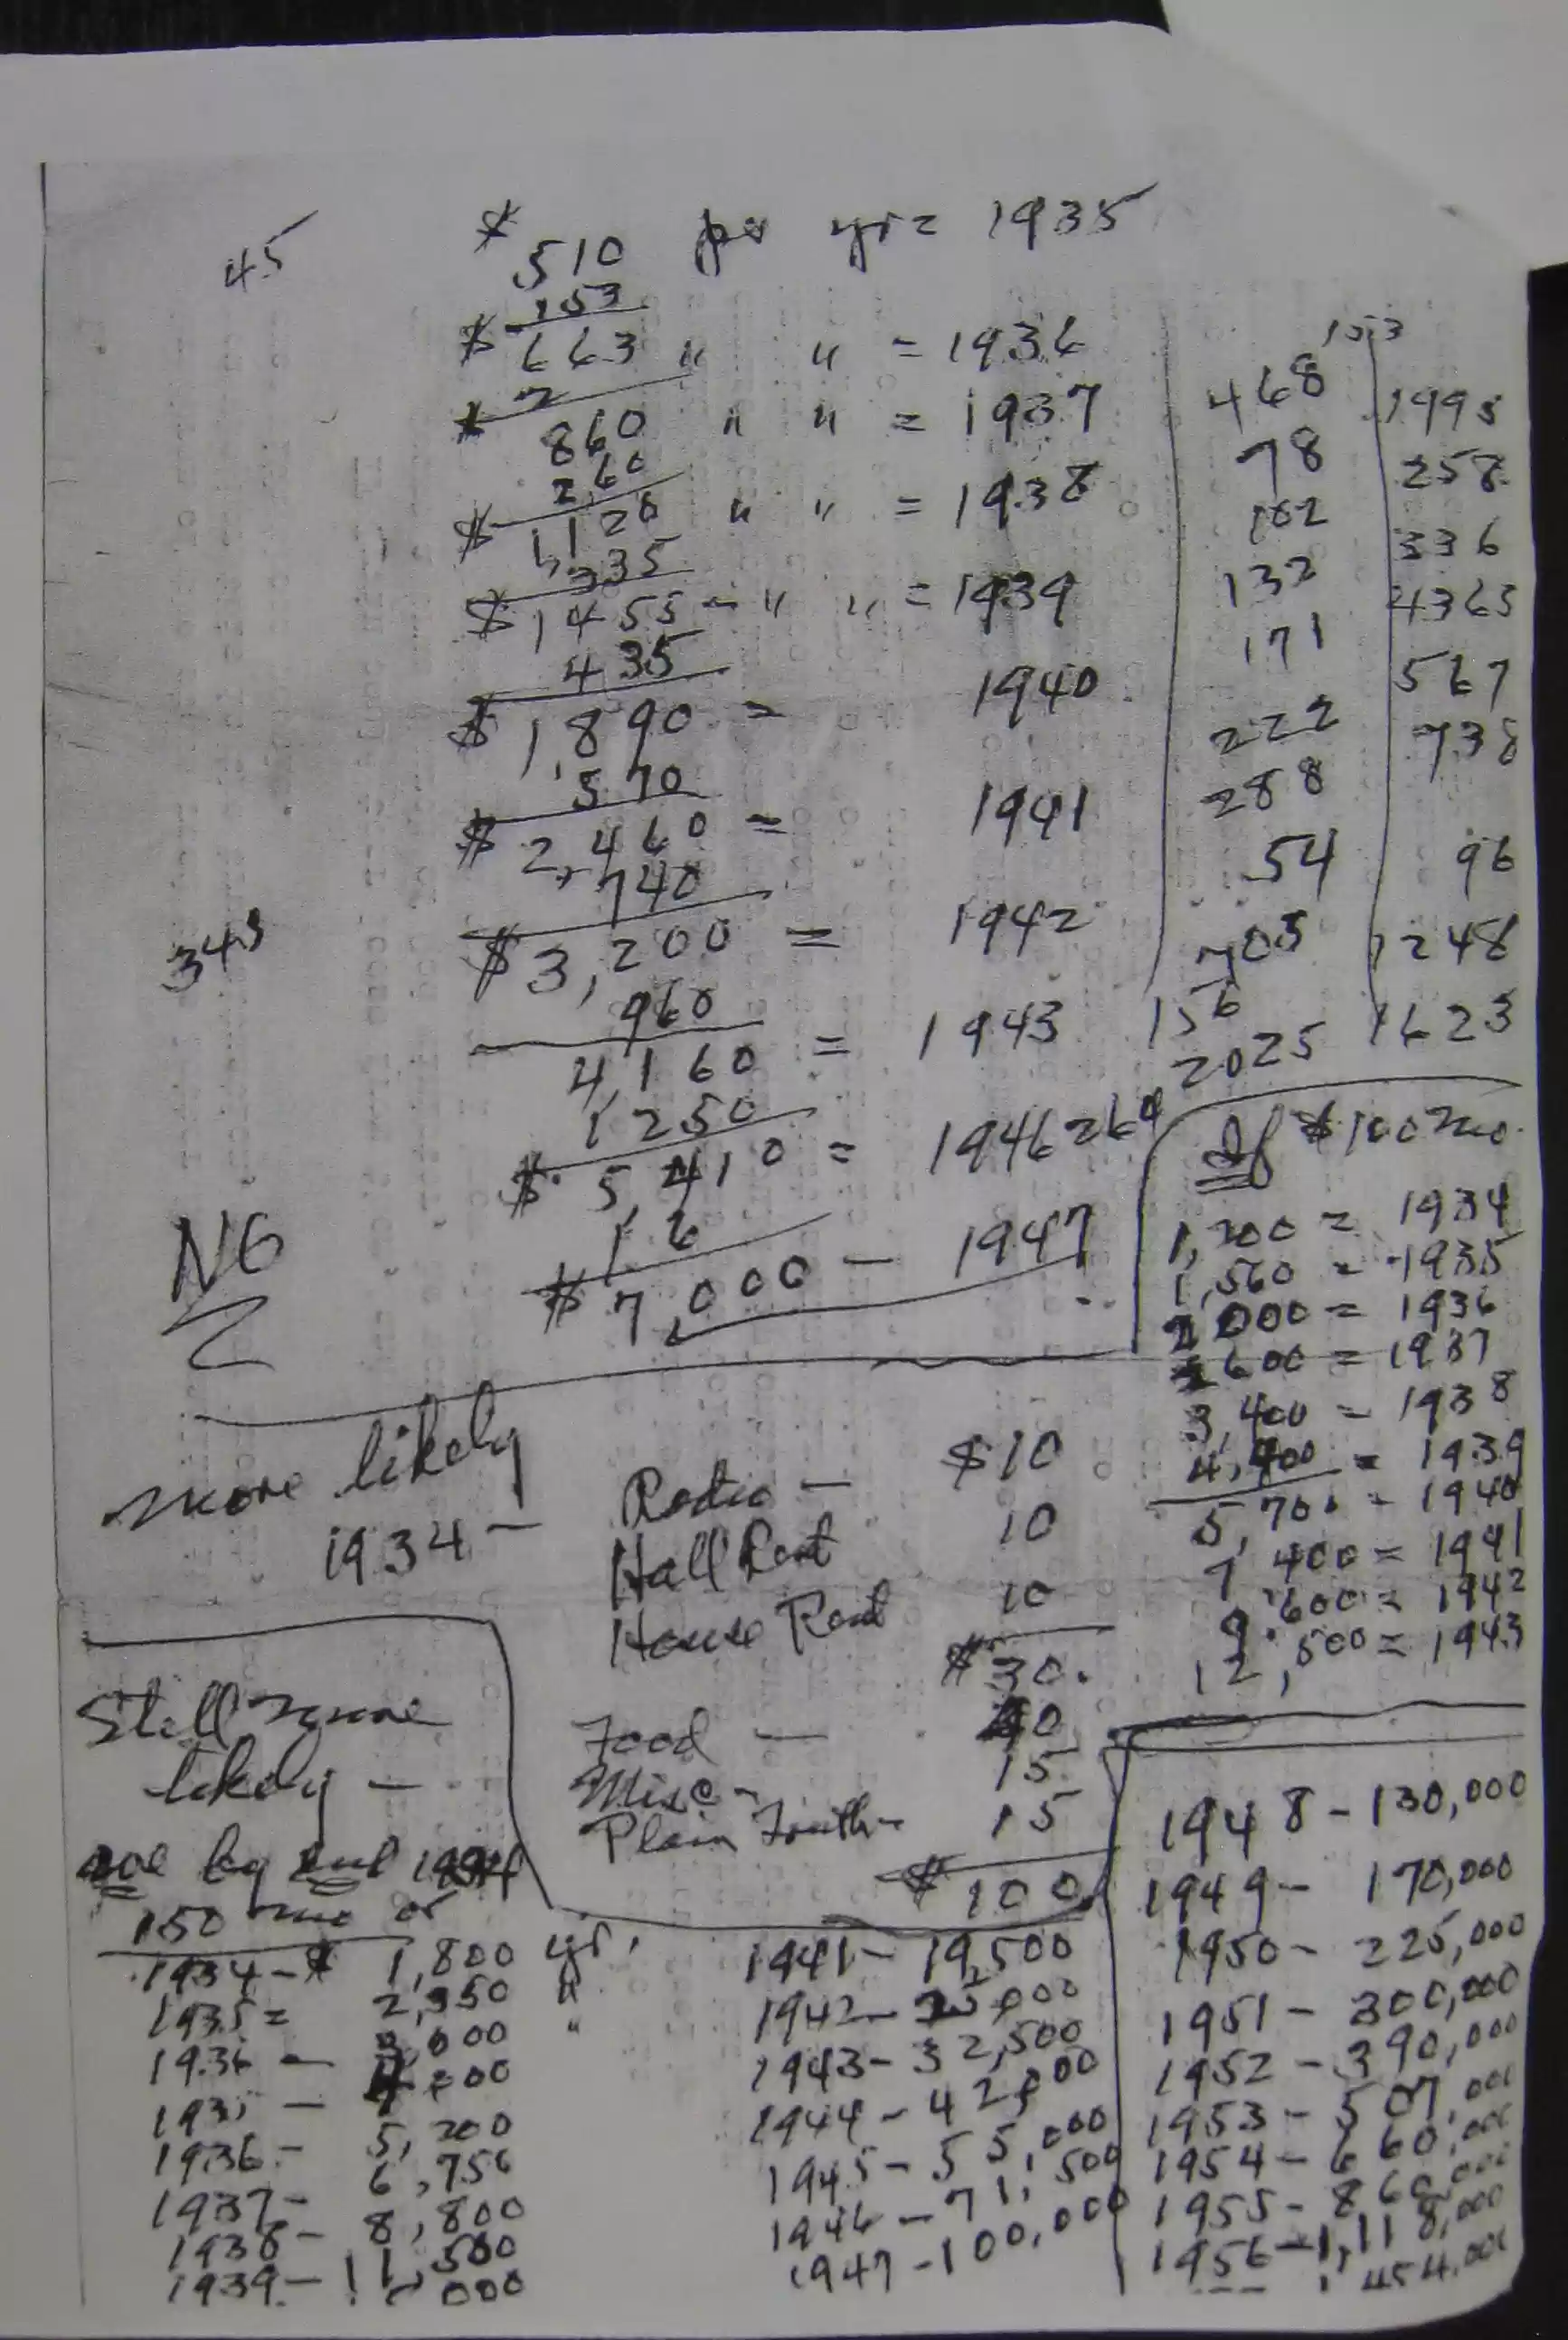 45
$ 510 per yr = 1935
153
$ 663 " " = 1936
2
$ 860 " " = 1937
260
$ 1,120 " " = 1938
335
$ 1,455 - " " = 1939
435
$ 1,890 = 1940
570
$ 2,460 = 1941
740
$ 3,200 = 1942
960
4,160 = 1943
1250
$ 5,410 = 1946
1 6
$ 7,000 - 1947
343
NG
153
468 1995
78 258
102 336
132 4365
171 567
222 738
288
54 96
703 1248
156
2025 1623
260
If $100 mo.
1,200 = 1934
1,560 = 1935
2000 = 1936
2600 = 1937
3,400 = 1938
4,400 = 1939
5,700 = 1940
7 400 = 1941
9.600 = 1942
12,500 = 1943
More likely
1934 - Radio - $10
Hall Rent 10
House Rent 10
$30.
Food - 40
Misc - 15
Plain Truth - 15
$100
Still more
likely -
by end
150 mo or
1934 - $ 1,800 yr.
1935 = 2,350 "
1936 - 3,000 "
1935 - 4,000
1936 - 5,200
1937 - 6,750
1938 - 8,800
1939 - 11,500
000
1941 - 19,500
1942 - 25,000
1943 - 32,500
1944 - 42,000
1945 - 55,000
1946 - 71,500
1947 - 100,000
1948 - 130,000
1949 - 170,000
1950 - 225,000
1951 - 300,000
1952 - 390,000
1953 - 507,000
1954 - 660,000
1955 - 860,000
1956 - 1,118,000
454,000